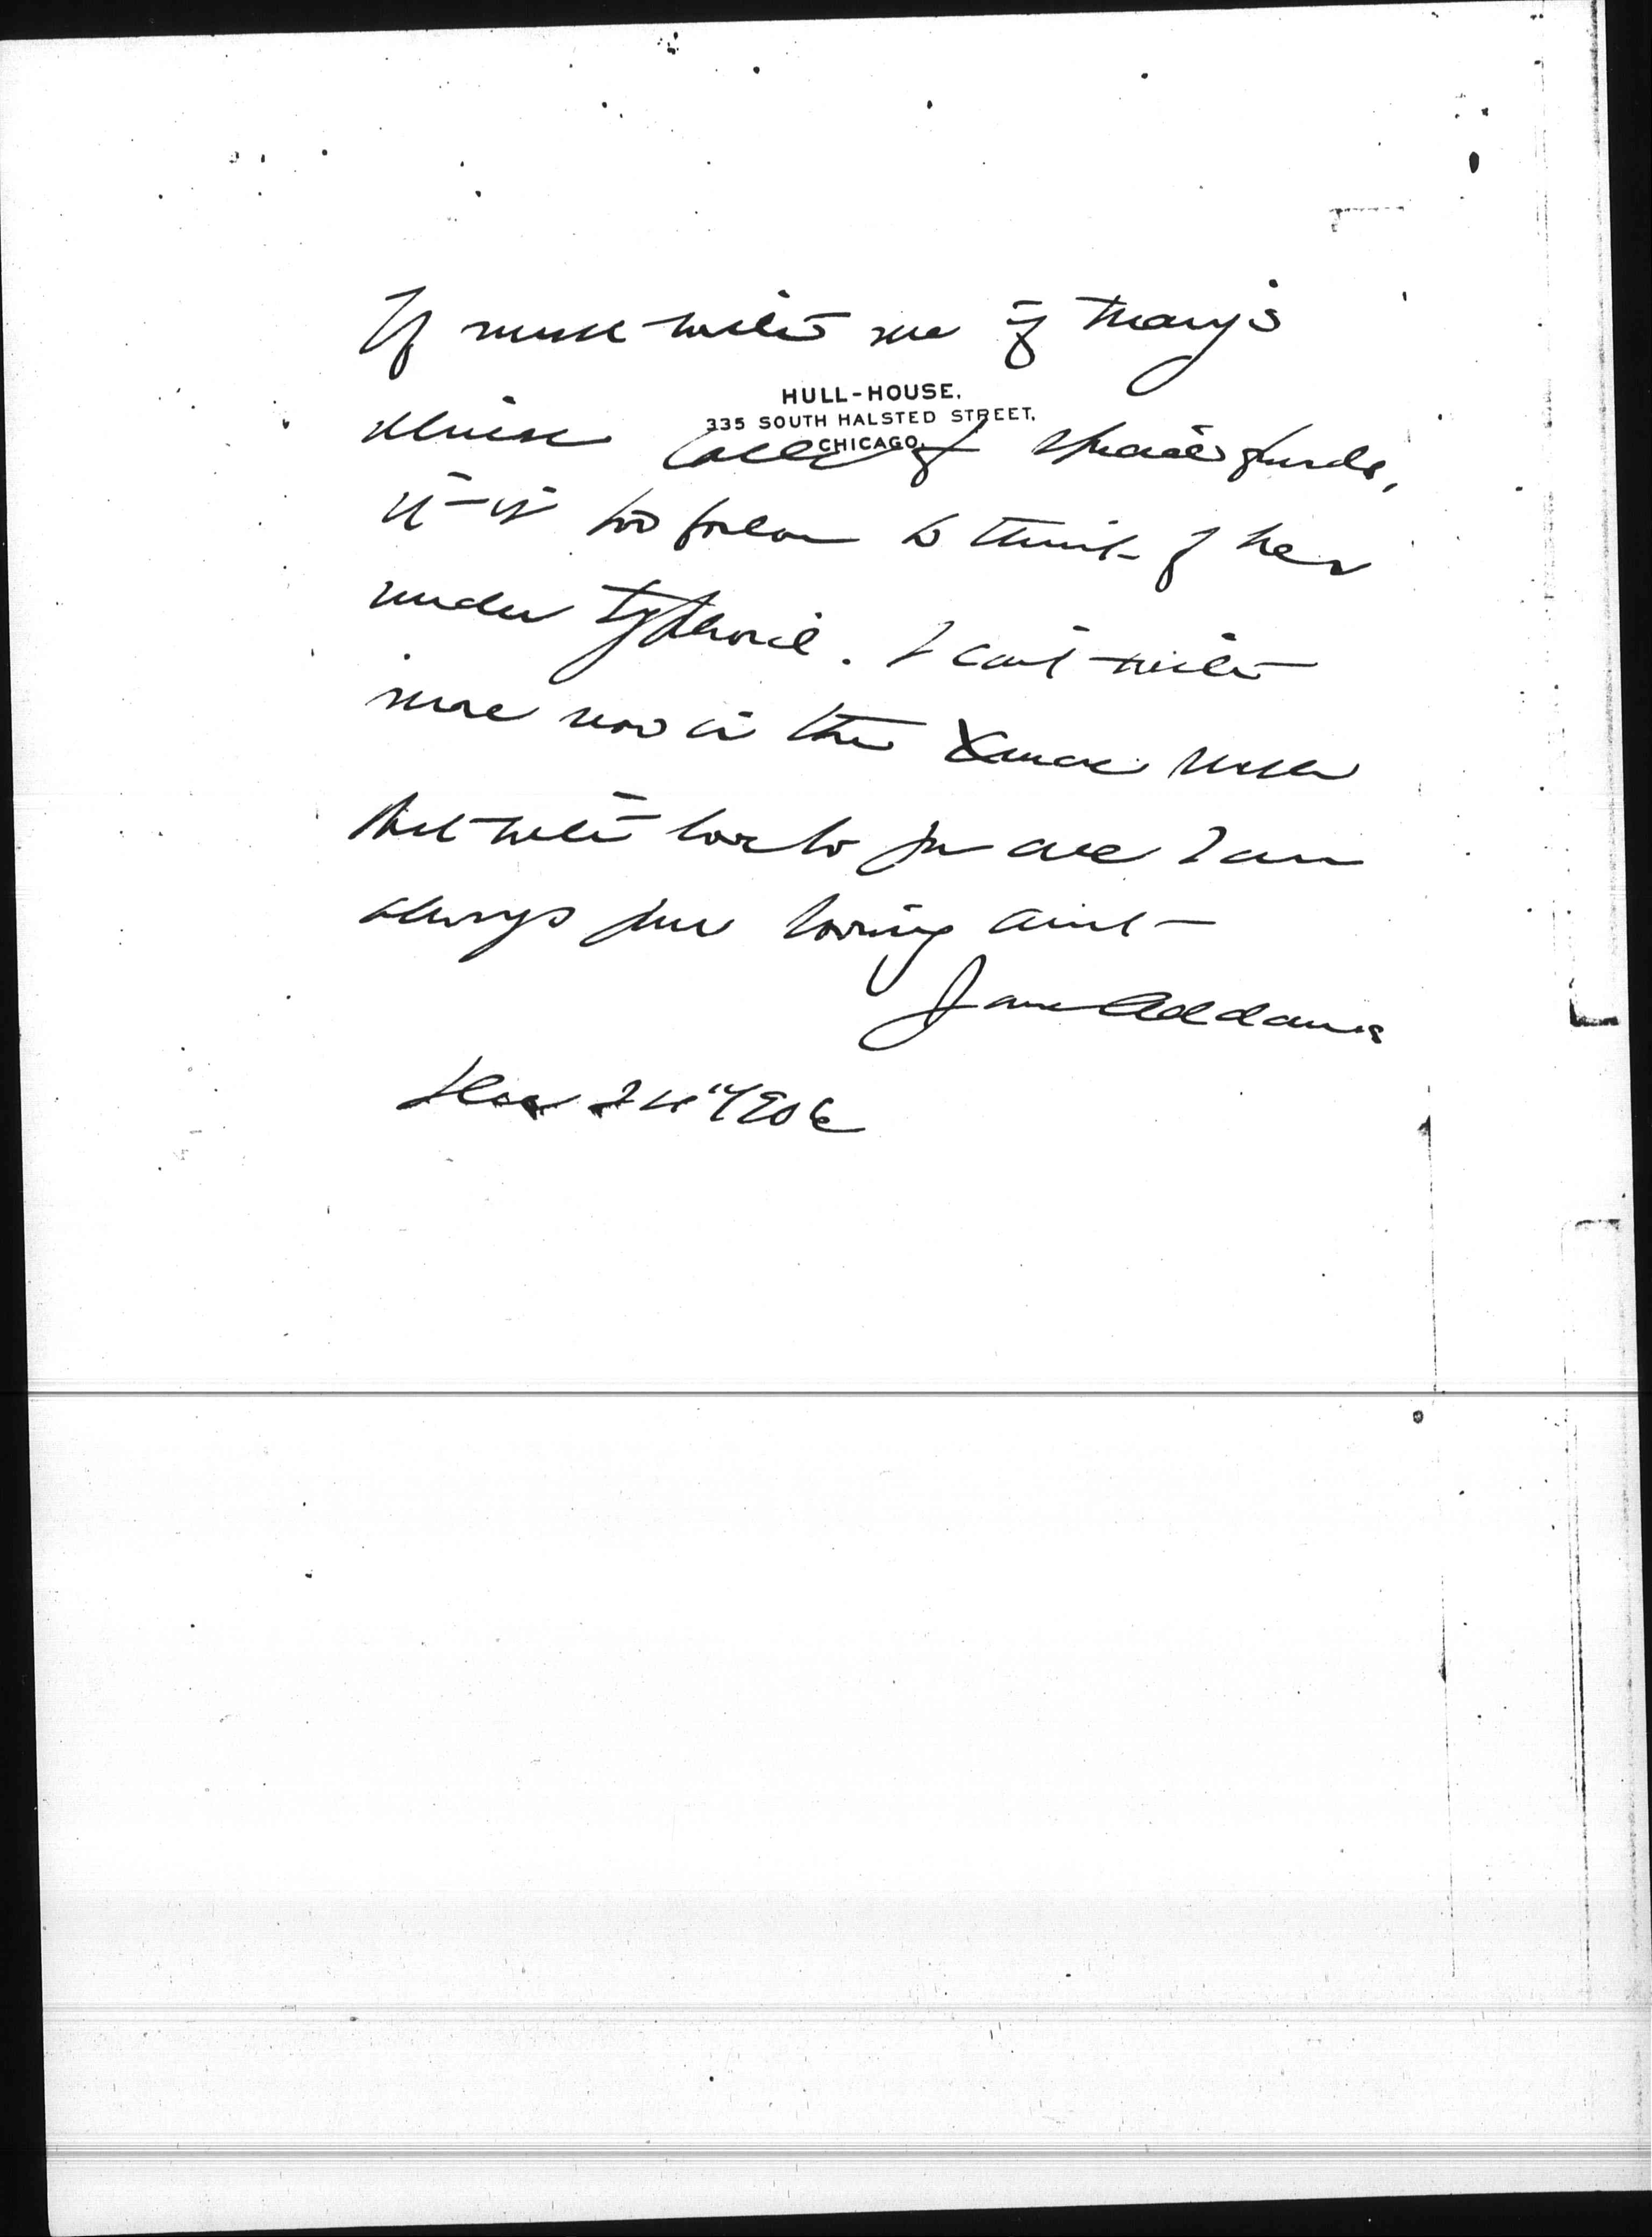 If must write me if Mary's
HULL-HOUSE.
335 SOUTH HALSTED STREET,
CHICAGO.
illness of funds,
it is too forlorn to think of her
under typhoid. I can't write
more now in the Xmas rush
But with love to you all I am
always your loving aunt
Jane Addams
Dec 24" 1906